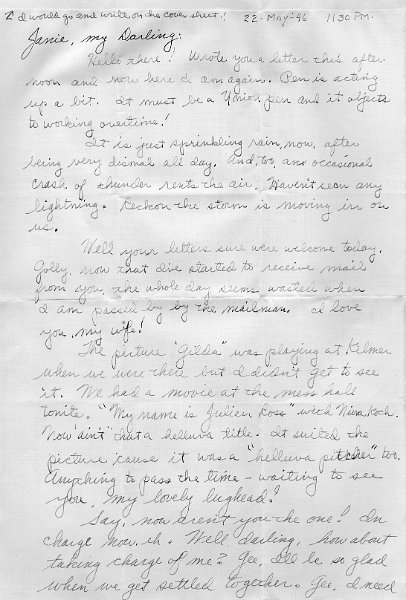 I would go and write on the cover sheet! 22-May-46 1130 PM.
Janie, my Darling:
Hello there! Wrote you a letter this after-
noon and now here I am again. Pen is acting
up a bit. It must be a Union pen and it objects
to working overtime!
It is just sprinkling rain, now, after
being very dismal all day. And, too, an occasional
crash of thunder rents the air. Haven't seen any
lightning. Reckon the storm is moving in on
us.
Well your letters sure were welcome today.
Golly, now that I've started to receive mail
from you, the whole day seems wasted when
I am passed by by the mailman. I love
you, my wife!
The picture "Gilda" was playing at Kilmer
when we were there but I didn't get to see
it. We had a movie at the mess hall
tonite. "My name is Julian Ross" with Nina Foch.
Now 'aint' that a helluva title. It suited the
picture 'cause it was a "helluva pitcher" too.
Anything to pass the time - waiting to see
you, my lovely lughead!
Say, now aren't you the one! In
charge now, eh. Well darling, how about
taking charge of me? Gee, I'll be so glad
when we get settled together. Gee, I need